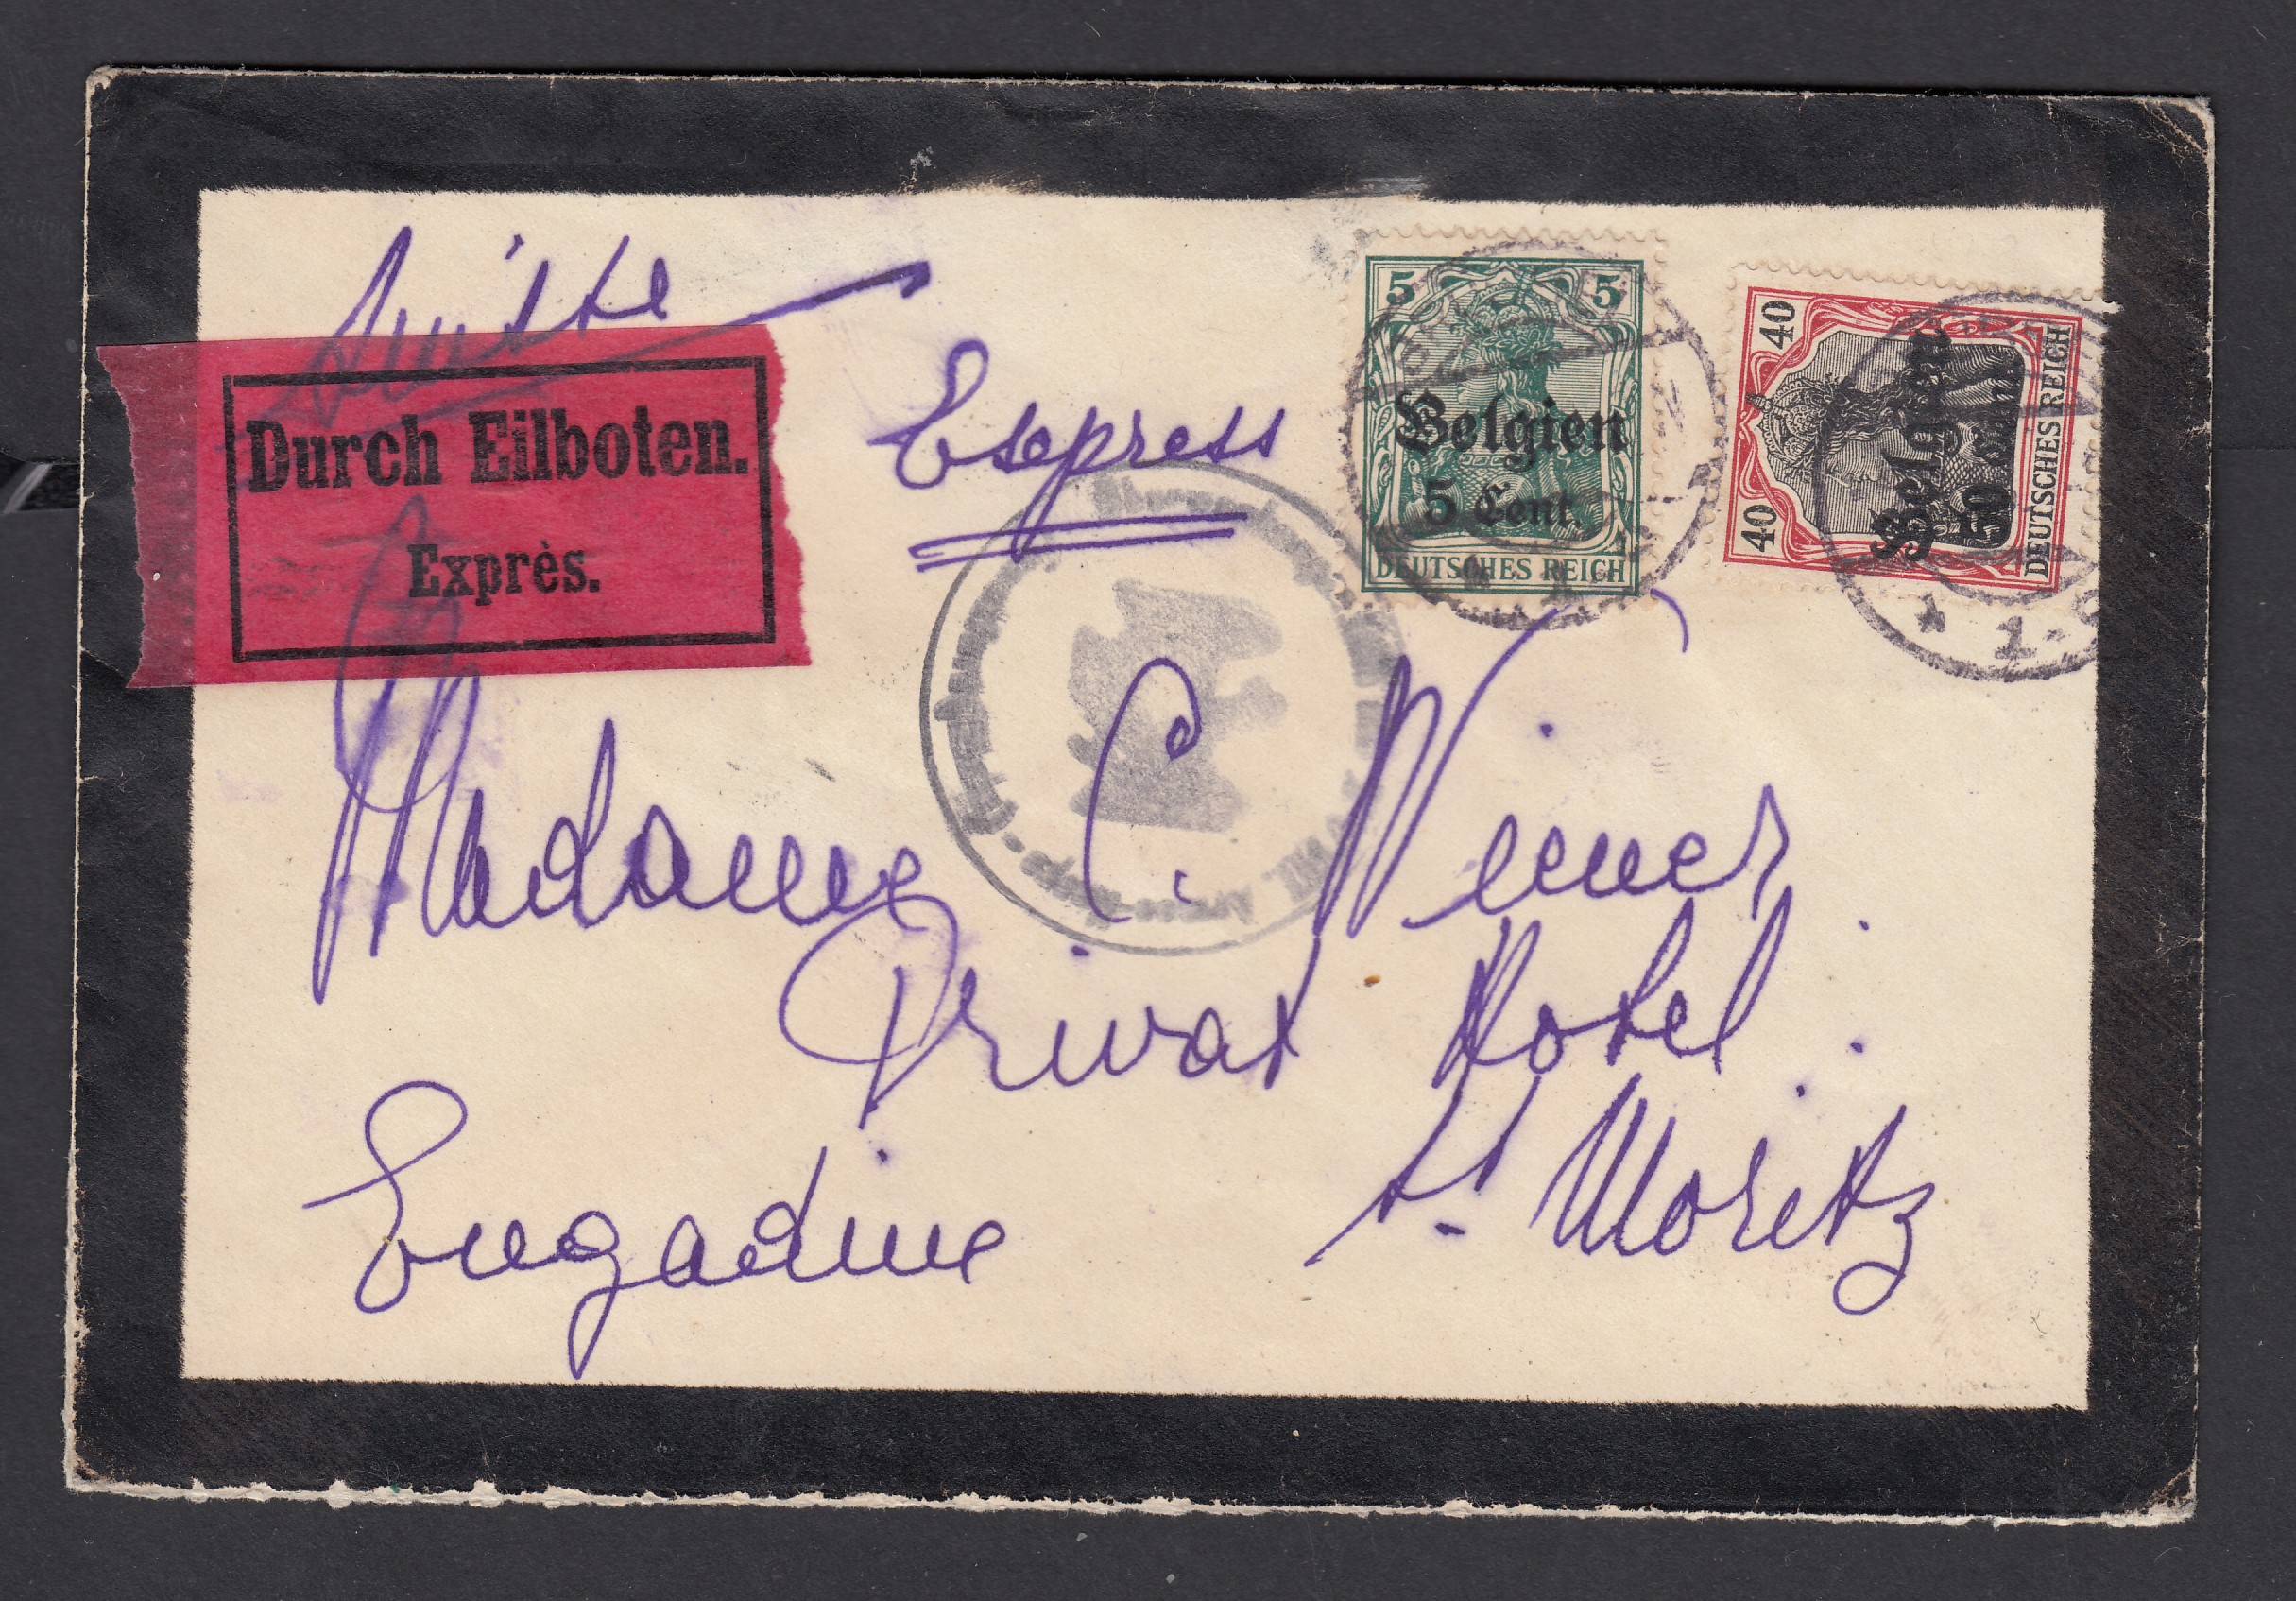 Suisse
Durch Eilboten.
Exprès.
Express
5 5
Belgien
5 Cent.
DEUTSCHES REICH
40 40
Belgien
50 Cent.
DEUTSCHES REICH
Madame C. Wiener
Privat Hotel
St. Moritz
Engadine